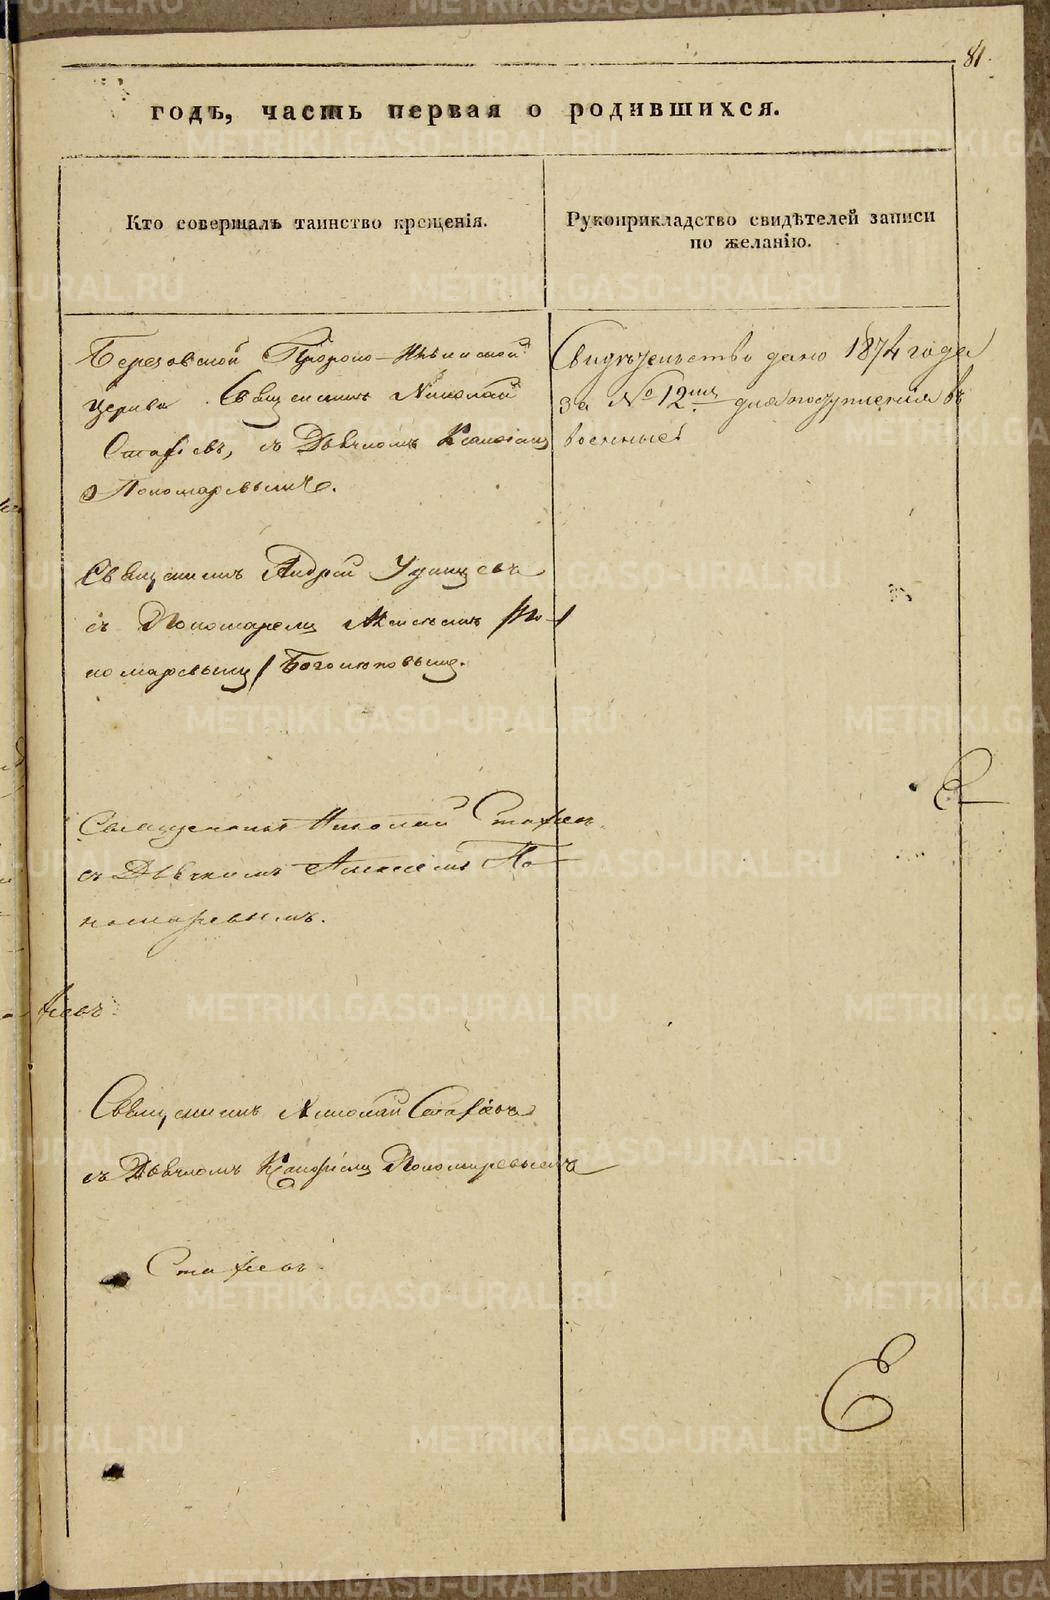 81.
годъ, часть первая о родившихся.
Кто совершалъ таинство крещенія.
Рукоприкладство свидѣтелей записи
по желанію.
Березовской Пророко-Ильинской
Церкви Священникъ Николай
Стафіевъ, съ Дьячкомъ
Пономаревымъ.
Свидѣтельство дано 1874 года
за № 12мъ для поступленія въ
военные
Священникъ Андрей Удинцевъ
съ Пономаремъ По-
номаревымъ / Боголюбовымъ.
Священникъ Николай Стафіев
съ Дьячкомъ Алексеемъ По-
номаревымъ.
фіевъ
Священникъ Николай Стафіевъ
съ Дьячкомъ Пономаревымъ
Стафіевъ.
METRIKI.GASO-URAL.RU